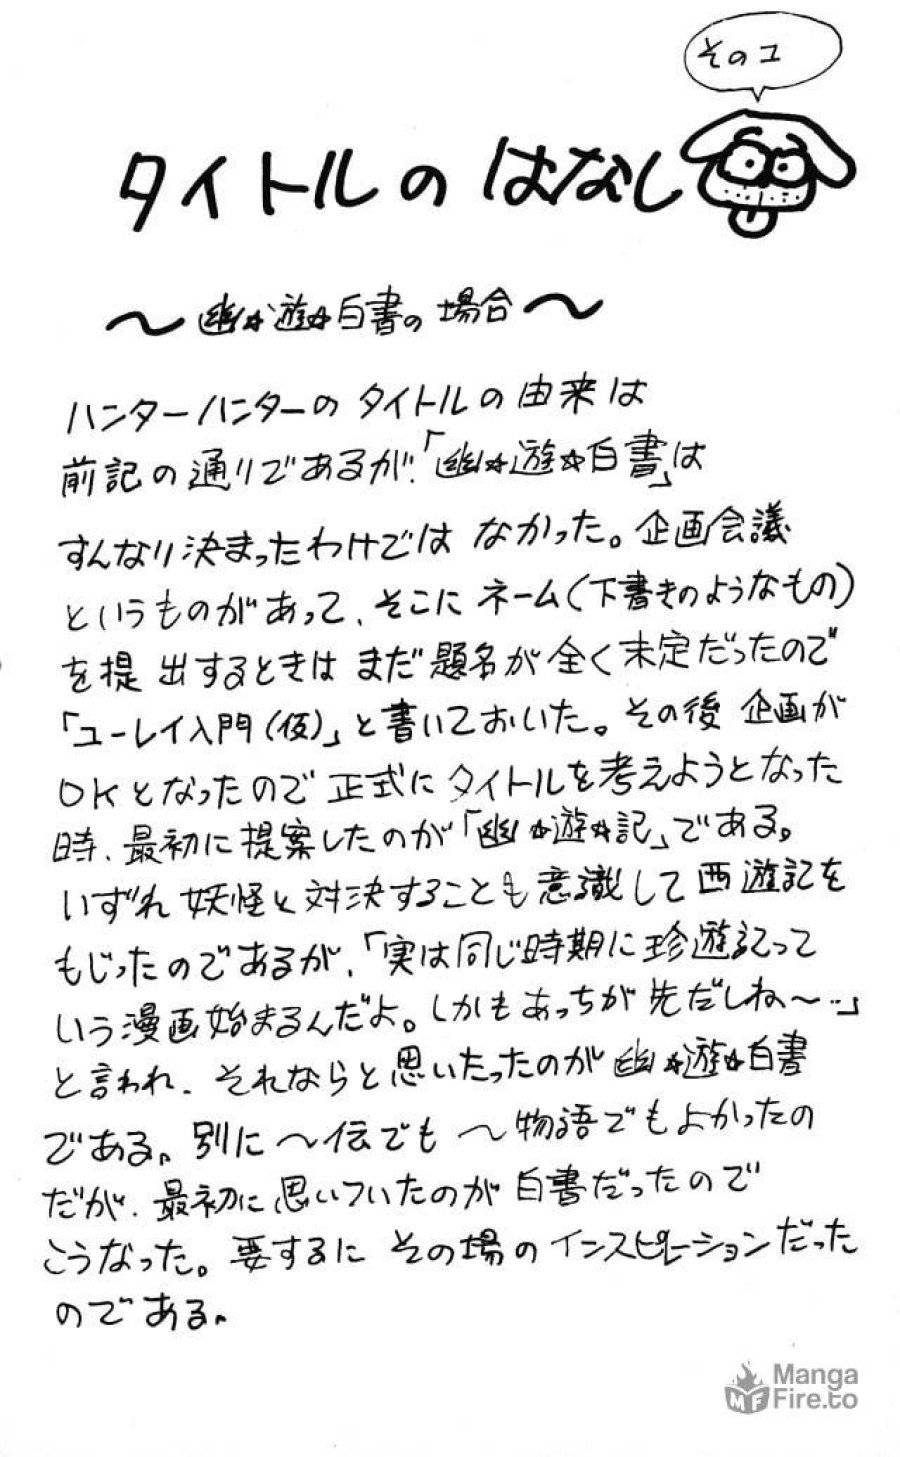 その2
タイトルの はなし
〜幽☆遊☆白書の場合〜
ハンターハンターの タイトルの由来は
前記の通りであるが、「幽☆遊☆白書」は
すんなり決まったわけでは なかった。企画会議
というものがあって、そこに ネーム(下書きのようなもの)
を提出するときは まだ題名が 全く未定だったので
「ユーレイ入門(仮)」と書いておいた。その後 企画が
OKとなったので 正式に タイトルを考えようとなった
時、最初に提案したのが「幽☆遊☆記」である。
いずれ 妖怪と 対決することも意識して 西遊記を
もじったのであるが、「実は同じ時期に 珍遊記って
いう漫画始まるんだよ。しかもあっちが 先だしね〜‥」
と言われ、それならと思いたったのが 幽☆遊☆白書
である。別に 〜伝でも 〜物語でもよかったの
だが、最初に 思いついたのが 白書だったので
こうなった。要するに その場の インスピレーションだった
のである。
Manga
Fire.to
MF